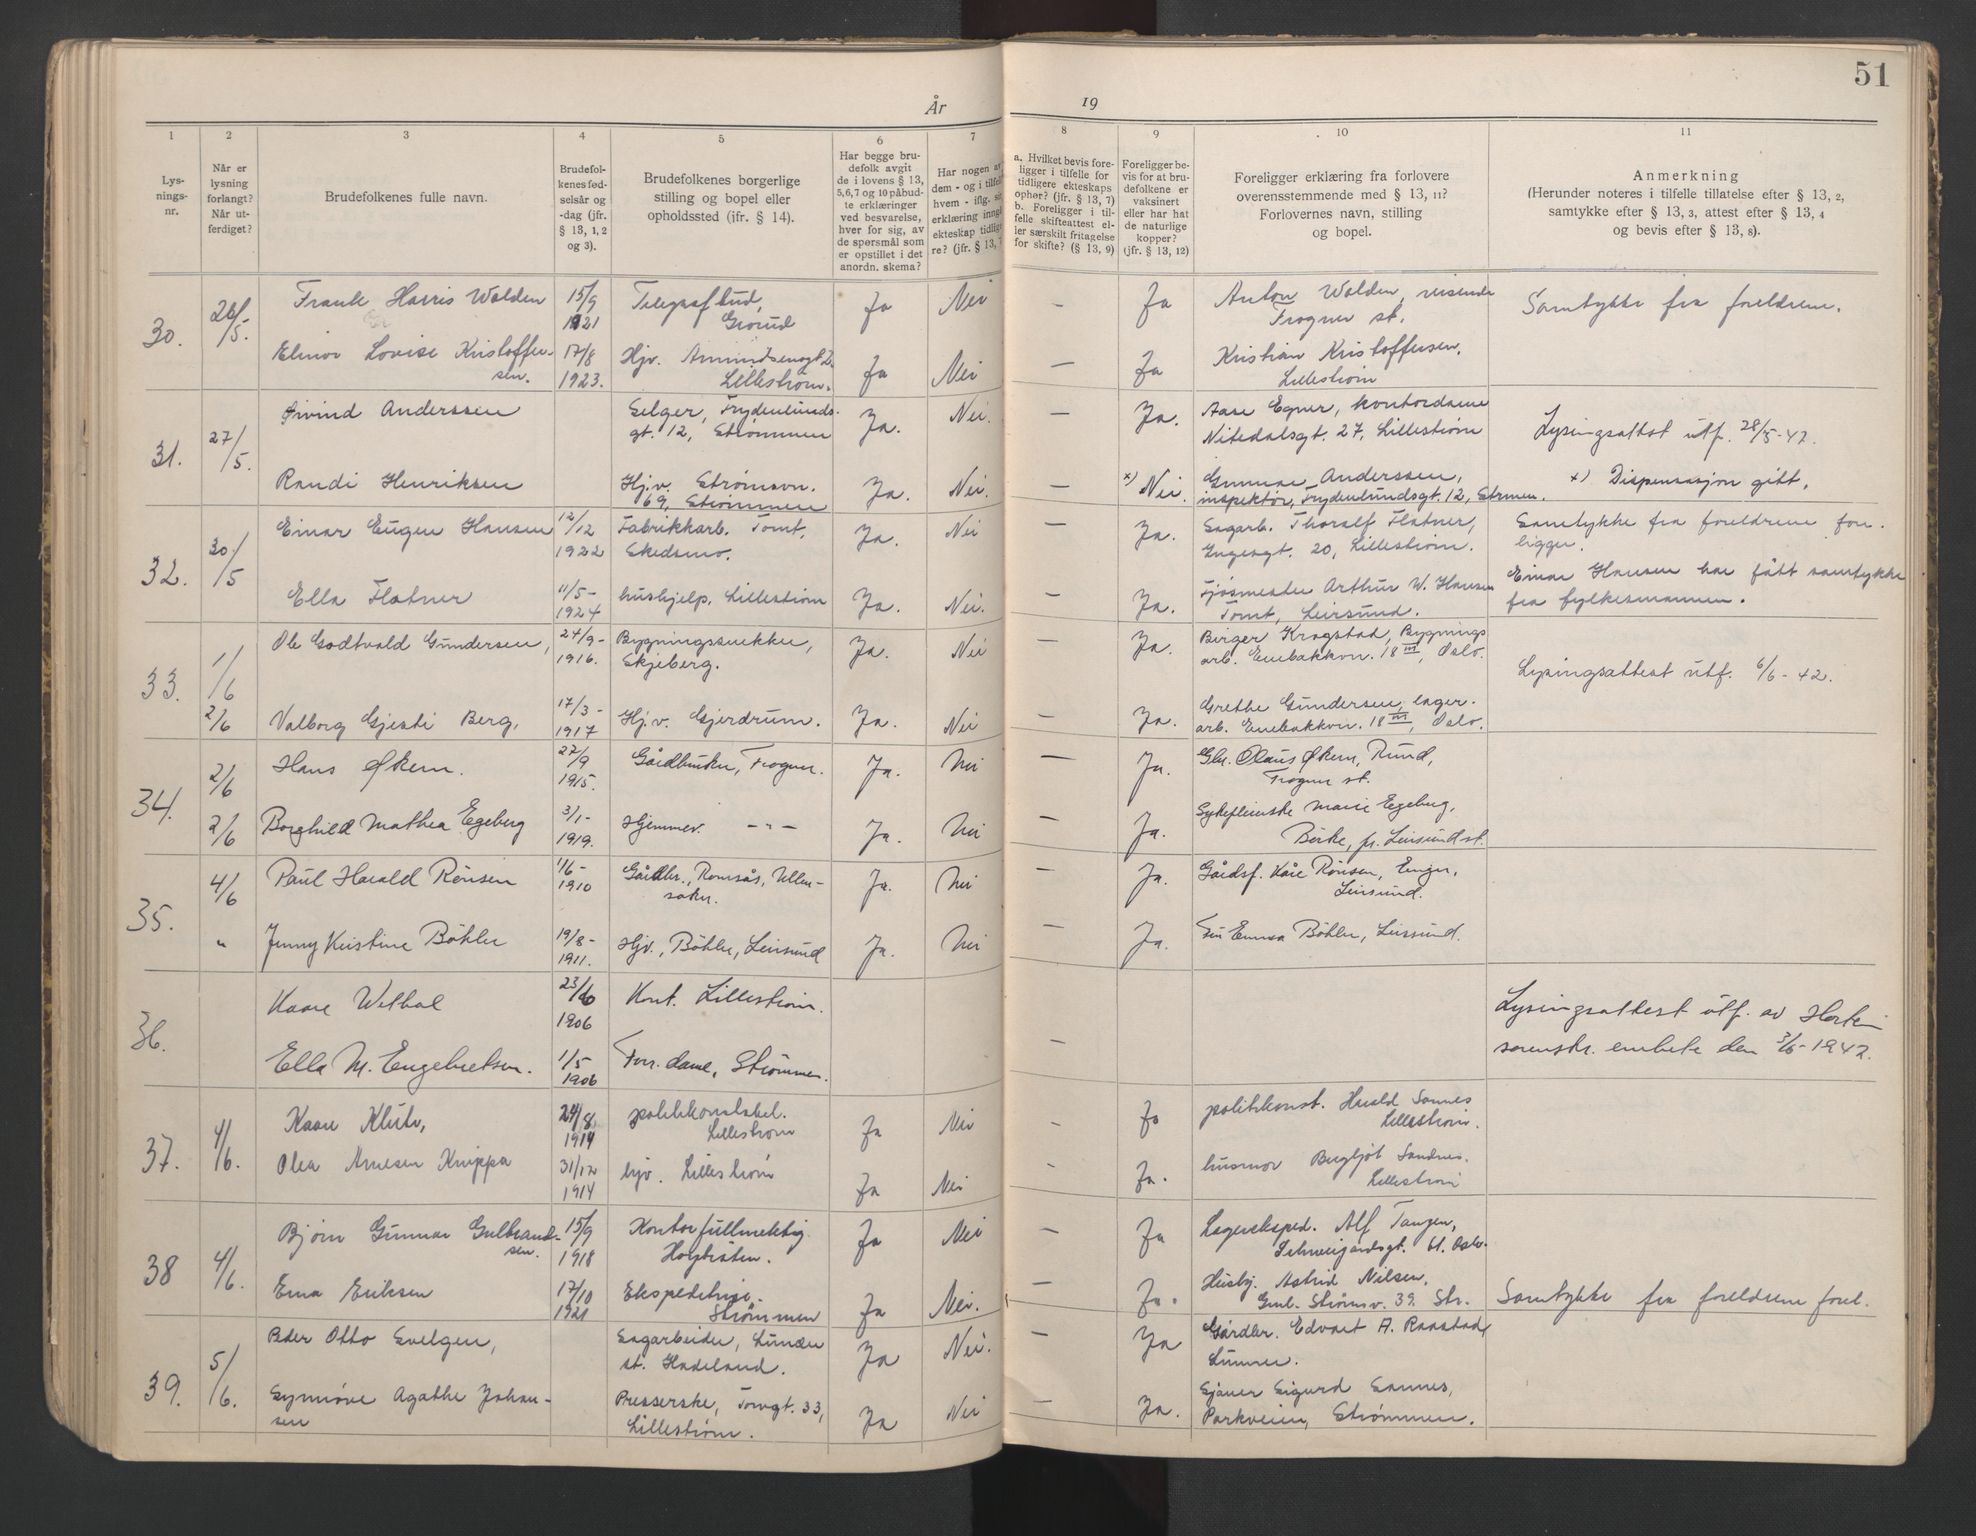 51
År
19
1
2
3
4
5
6
7
8
9
10
11
Lys-
nings-
nr.
Når er
lysning
forlangt?
Når ut-
ferdiget?
Brudefolkenes fulle navn.
Brudefol-
kenes fød-
selsår og
-dag (jfr.
§ 13, 1, 2
og 3).
Brudefolkenes borgerlige
stilling og bopel eller
opholdssted (jfr. § 14).
Har begge bru-
defolk avgit
de i lovens § 13,
5,6,7 og 10 påbud-
te erklæringer
ved besvarelse,
hver for sig, av
de spørsmål som
er opstillet i det
anordn. skema?
Har nogen av
dem - og i tilfelle
hvem - iflg. sin
erklæring inngått
ekteskap tidlige-
re? (jfr. § 13, 7
a. Hvilket bevis fore-
ligger i tilfelle for
tidligere ekteskaps
opher? (jfr. § 13, 7)
b. Foreligger i til-
felle skifteattest el-
ler særskilt fritagelse
for skifte? (§ 13, 9)
Foreligger be-
vis for at bru-
defolkene er
vaksinert
eller har hat
de naturlige
kopper?
(jfr. § 13, 12)
Foreligger erklæring fra forlovere
overensstemmende med § 13, 11?
Forlovernes navn, stilling
og bopel.
Anmerkning
(Herunder noteres i tilfelle tillatelse efter § 13, 2,
samtykke efter § 13, 3, attest efter § 13, 4
og bevis efter § 13, 8).
30. 26/5. Frank Harris Walden 15/9 1921 Telegrafbud, Grorud Ja Nei — Ja Anton Walden, reisende Frogner st. Samtykke fra foreldrene.
Elinor Lovise Kristoffer-
sen. 17/8 1923. Hjv. Amundsensgt 2. Lillestrøm. Ja Nei — Ja Kristian Kristoffersen, Lillestrøm
31. 27/5. Øivind Anderssen Selger, Frydenlunds-
gt. 12, Strømmen Ja. Nei. — Ja. Aase Egner, kontordame Nitedalsgt. 27, Lillestrøm Lysingsattest utf. 28/5-42.
Randi Henriksen Hj.v. Strømsvn. 69, Strømmen Ja. Nei. — x) Nei. Gunnar Anderssen, inspektør, Frydenlundsgt. 12, Strmen. x) Dispensasjon gitt.
32. 30/5 Einar Eugen Hansen 12/12 1922 Fabrikkarb. Tomt, Skedsmo. Ja. Nei — Ja. Sagarb. Thoralf Flatner, Ingesgt. 20, Lillestrøm. Samtykke fra foreldrene fore-
ligger.
Ella Flatner 11/5- 1924 hushjelp, Lillestrøm Ja. Nei. — Ja. Fjøsmester Arthur W. Hansen Tomt, Leirsund. Einar Hansen har fått samtykke fra fylkesmannen.
33. 1/6 Ole Godtvald Gundersen, 24/9- 1916. Bygningssnekker, Skjeberg. Ja. Nei — Ja. Birger Krogstad, Bygnings
arb. Enebakkvn. 18 III, Oslo. Lysingsattest utf. 6/6-42.
2/6 Valborg Gjesti Berg, 17/3- 1917 Hj.v. Gjerdrum. Ja. Nei — Ja. Grethe Gundersen, lager-
arb. Enebakkvn. 18 III, Oslo.
34. 2/6 Hans Økern. 27/9 1915. Gårdbruker, Frogner. Ja. Nei — Ja. Gbr. Olaus Økern, Rund, Frogner st.
2/6 Borghild Mathea Egeberg 3/1- 1919. Hjemmev. -"- Ja. Nei — Ja. Sykepleierske Marie Egeberg, Børke, pr. Leirsund st.
35. 4/6 Paul Harald Rönsen 1/6- 1910 Gårdbr., Romsås, Ullen-
saker. Ja. Nei — Ja. Gårdsf. Kåre Rönsen, Enger, Leirsund.
" Jenny Kristine Böhler 19/8- 1911. Hjv., Böhler, Leirsund Ja. Nei — Ja. Fru Emma Böhler, Leirsund.
36. Kaare Wethal 23/10 1906 Kont. Lillestrøm. — Lysingsattest utf. av
Ella M. Engebretsen. 1/5 1906 Forr.dame, Strømmen. sorenskr. embete den 3/6-1942.
37. 4/6. Kaare Kluto, 24/8 1914 politikonstabel. Lillestrøm Ja Nei - Ja politikonst. Harald Sannes Lillestrøm.
Olea Arnesen Knippa 31/12 1914 hjv. Lillestrøm Ja Nei - Ja. husmor Bergljot Sandnes. Lillestrøm
38 4/6. Bjørn Gunnar Gulbrand-
sen. 15/9 1918 Kontorfullmektig. Ja Nei — Ja Lagereksped. Alf Tangen, Schweigårdsgt. 61. Oslo.
Erna Eriksen 17/10 1921 Ekspeditrise. Strømmen Ja Nei. — Ja. Husby. Astrid Nilsen, Gml. Strømsv. 39. Str. Samtykke fra foreldrene forel.
39. 5/6. Peder Otto Svelgen, Sagarbeider, Lunner st. Hadeland. Ja Nei. — Ja Gårdbr. Edvart A. Raastad, Lunner.
Synnøve Agathe Johan-
sen Presserske, Torvgt. 33, Lillestrøm. Ja Nei — Ja. Sjåuer Sigurd Sannes, Parkveien, Strømmen.